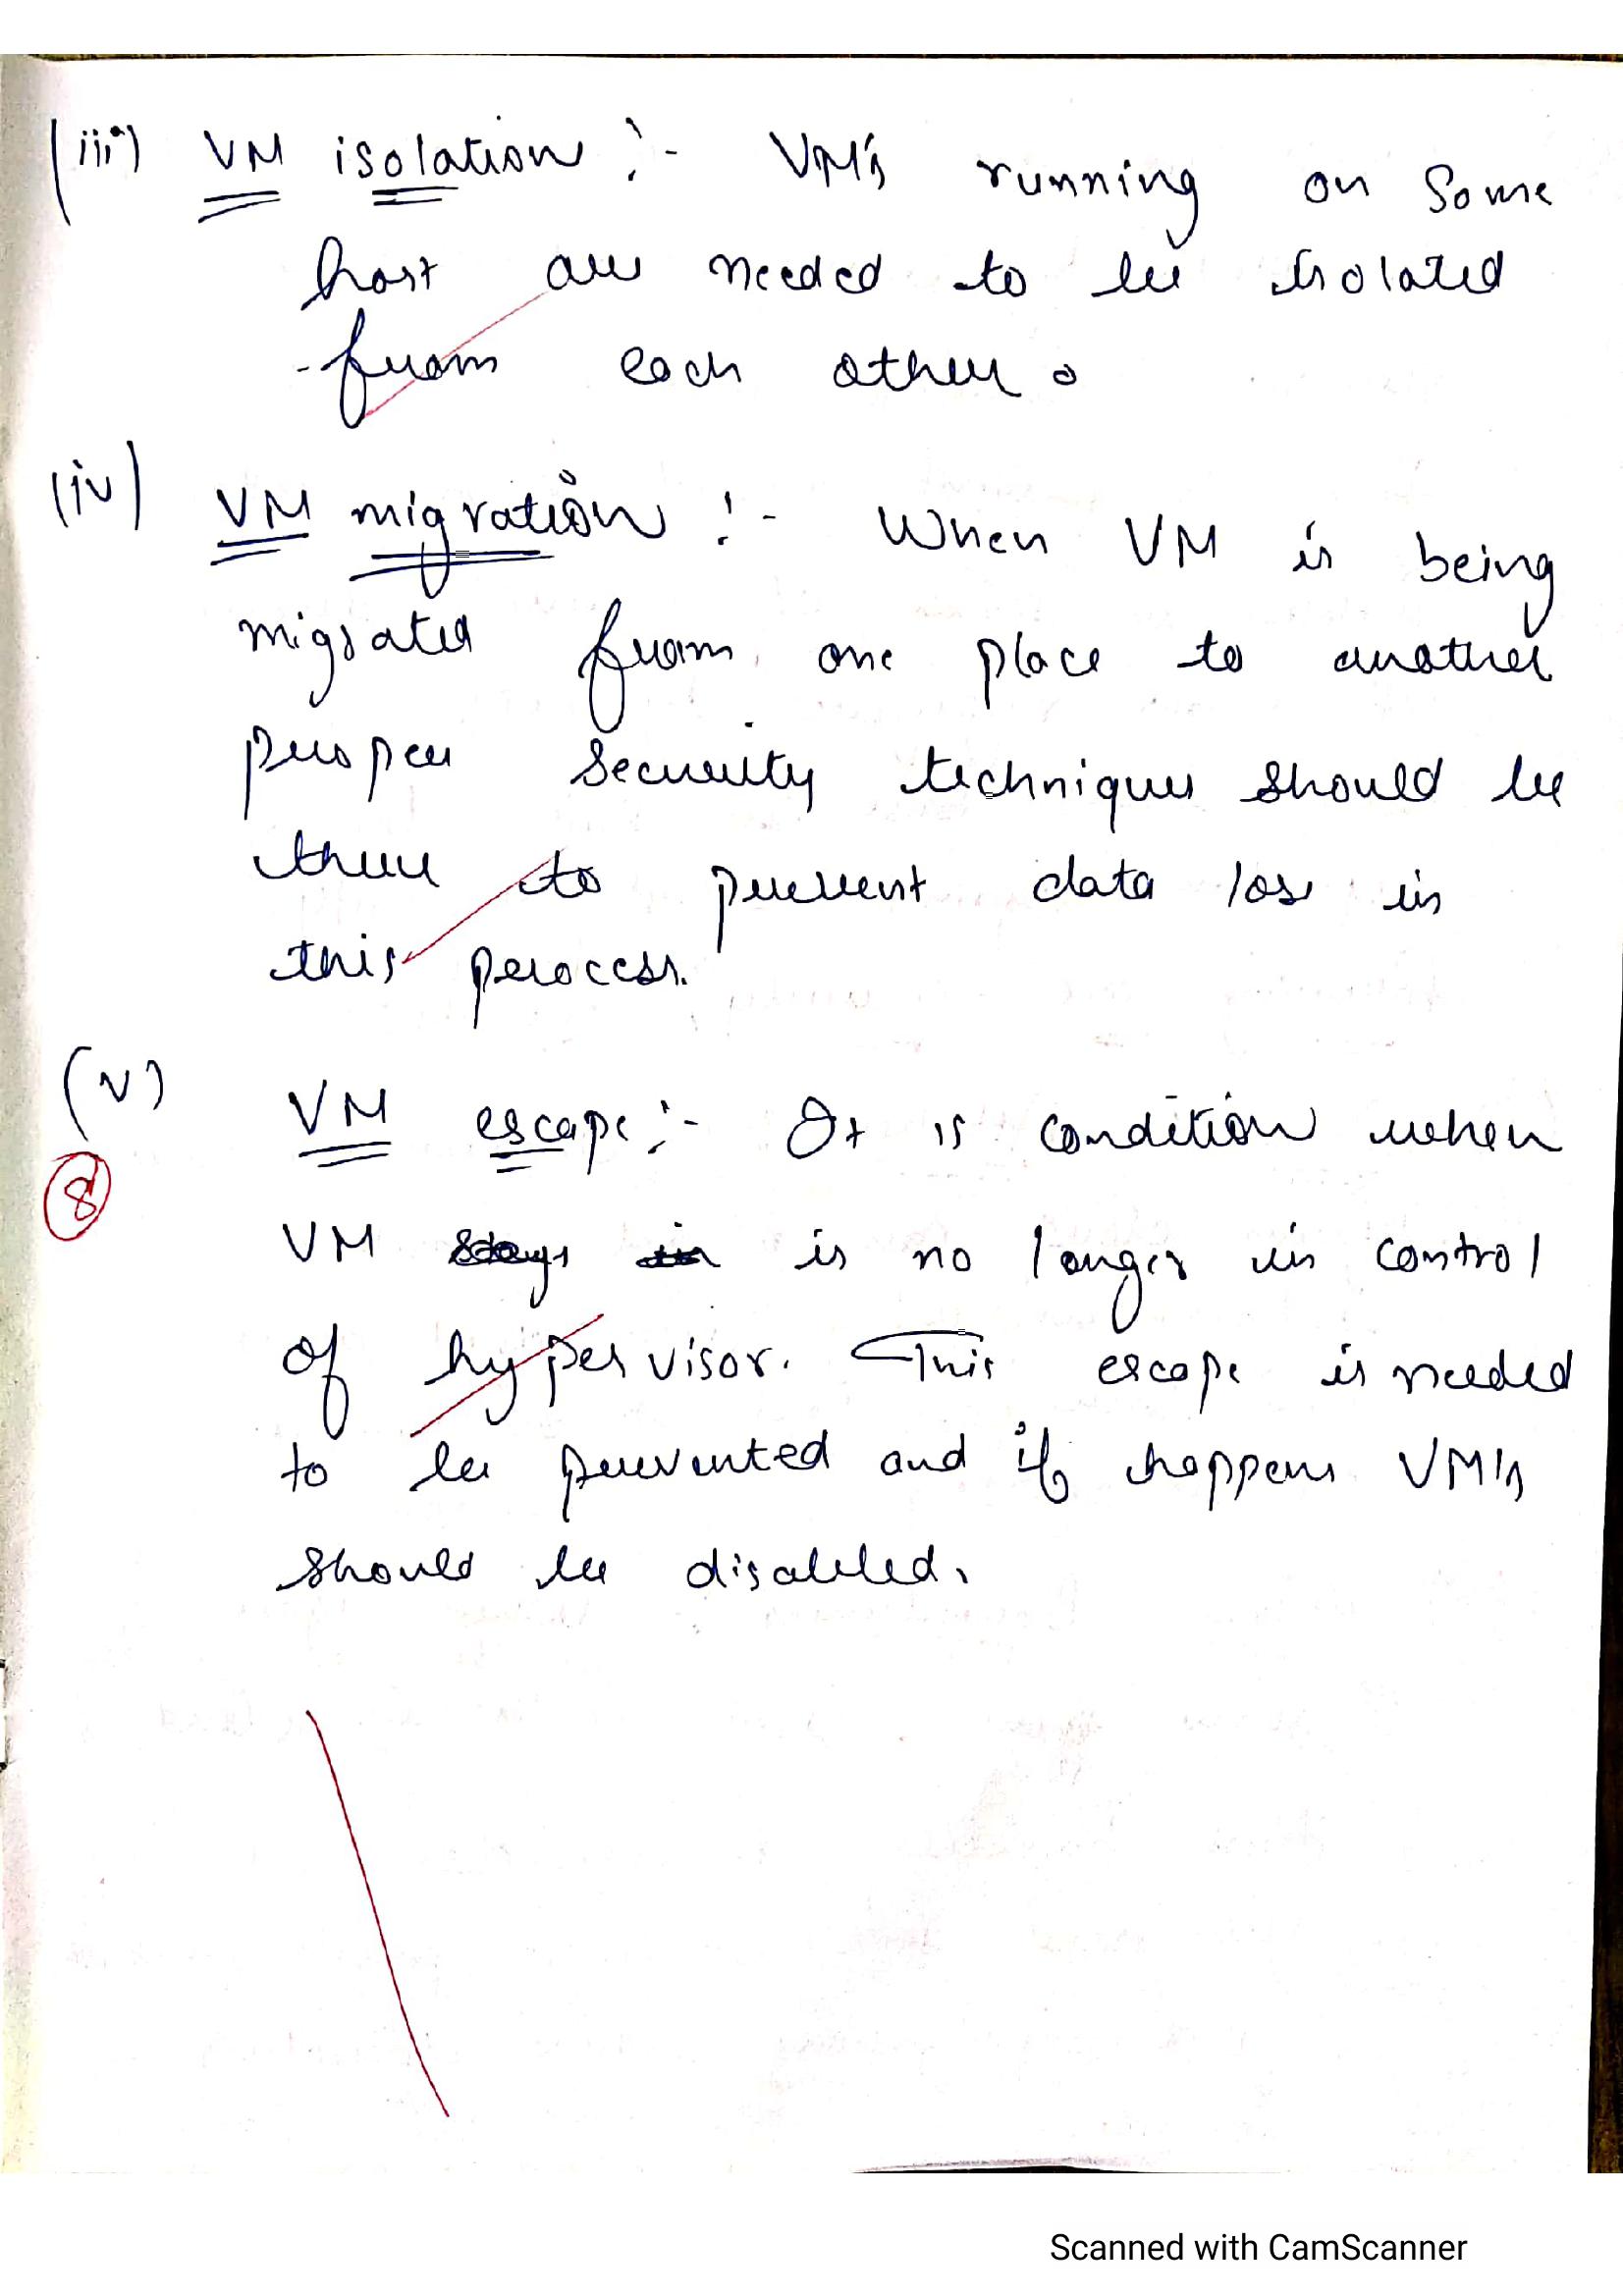 (iii) VM isolation :- VM's running on some
host are needed to be isolated
from each other.
(iv) VM migration :- When VM is being
migrated from one place to another
proper security techniques should be
there to prevent data loss in
this process.
(v) VM escape :- It is condition when
8
VM is no longer in control
of hypervisor. This escape is needed
to be prevented and if happens VM's
should be disabled.
Scanned with CamScanner